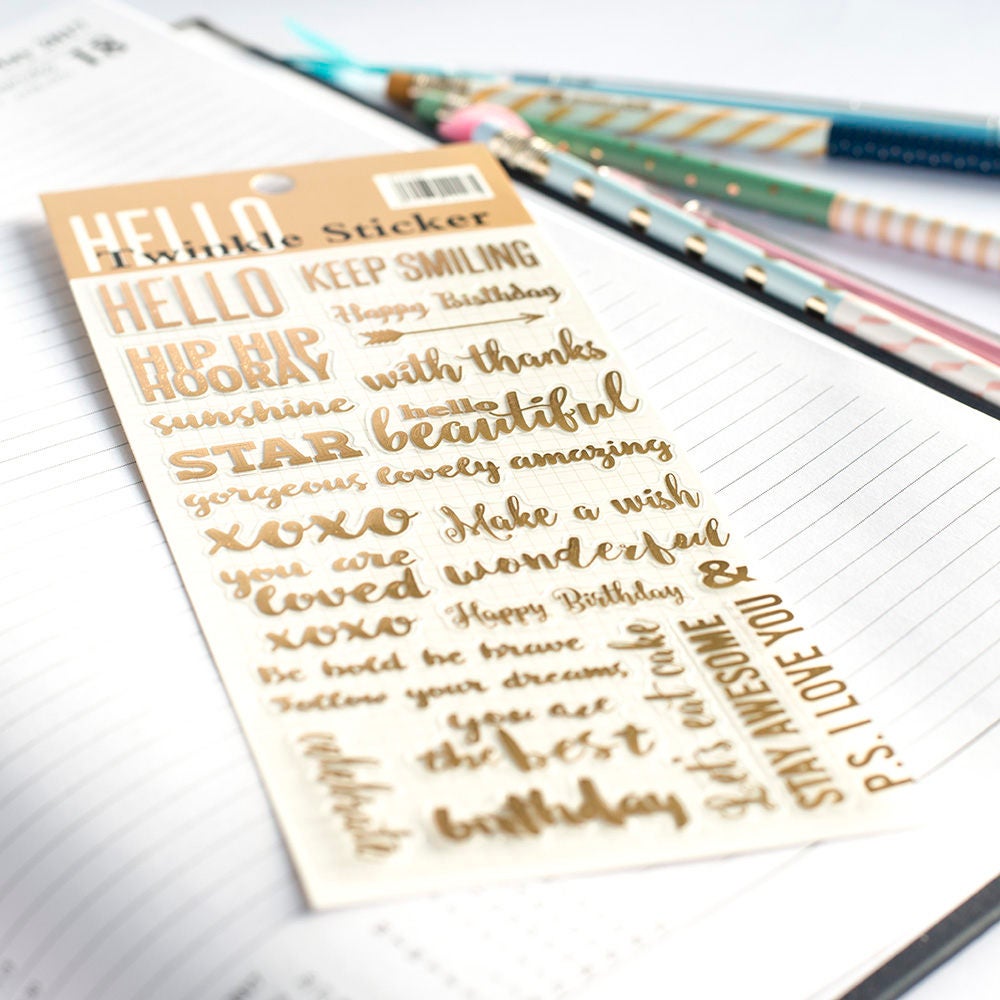 18
HELLO
Twinkle Sticker
HELLO
KEEP SMILING
Happy Birthday
HIP HIP
HOORAY
with thanks
sunshine
hello
beautiful
STAR
gorgeous lovely amazing
xoxo
Make a wish
you are
loved
wonderful
&
xoxo
Happy Birthday
Be bold be brave
Follow your dreams
Let's eat cake
STAY AWESOME
P.S. I LOVE YOU
you are
the best
celebrate
birthday